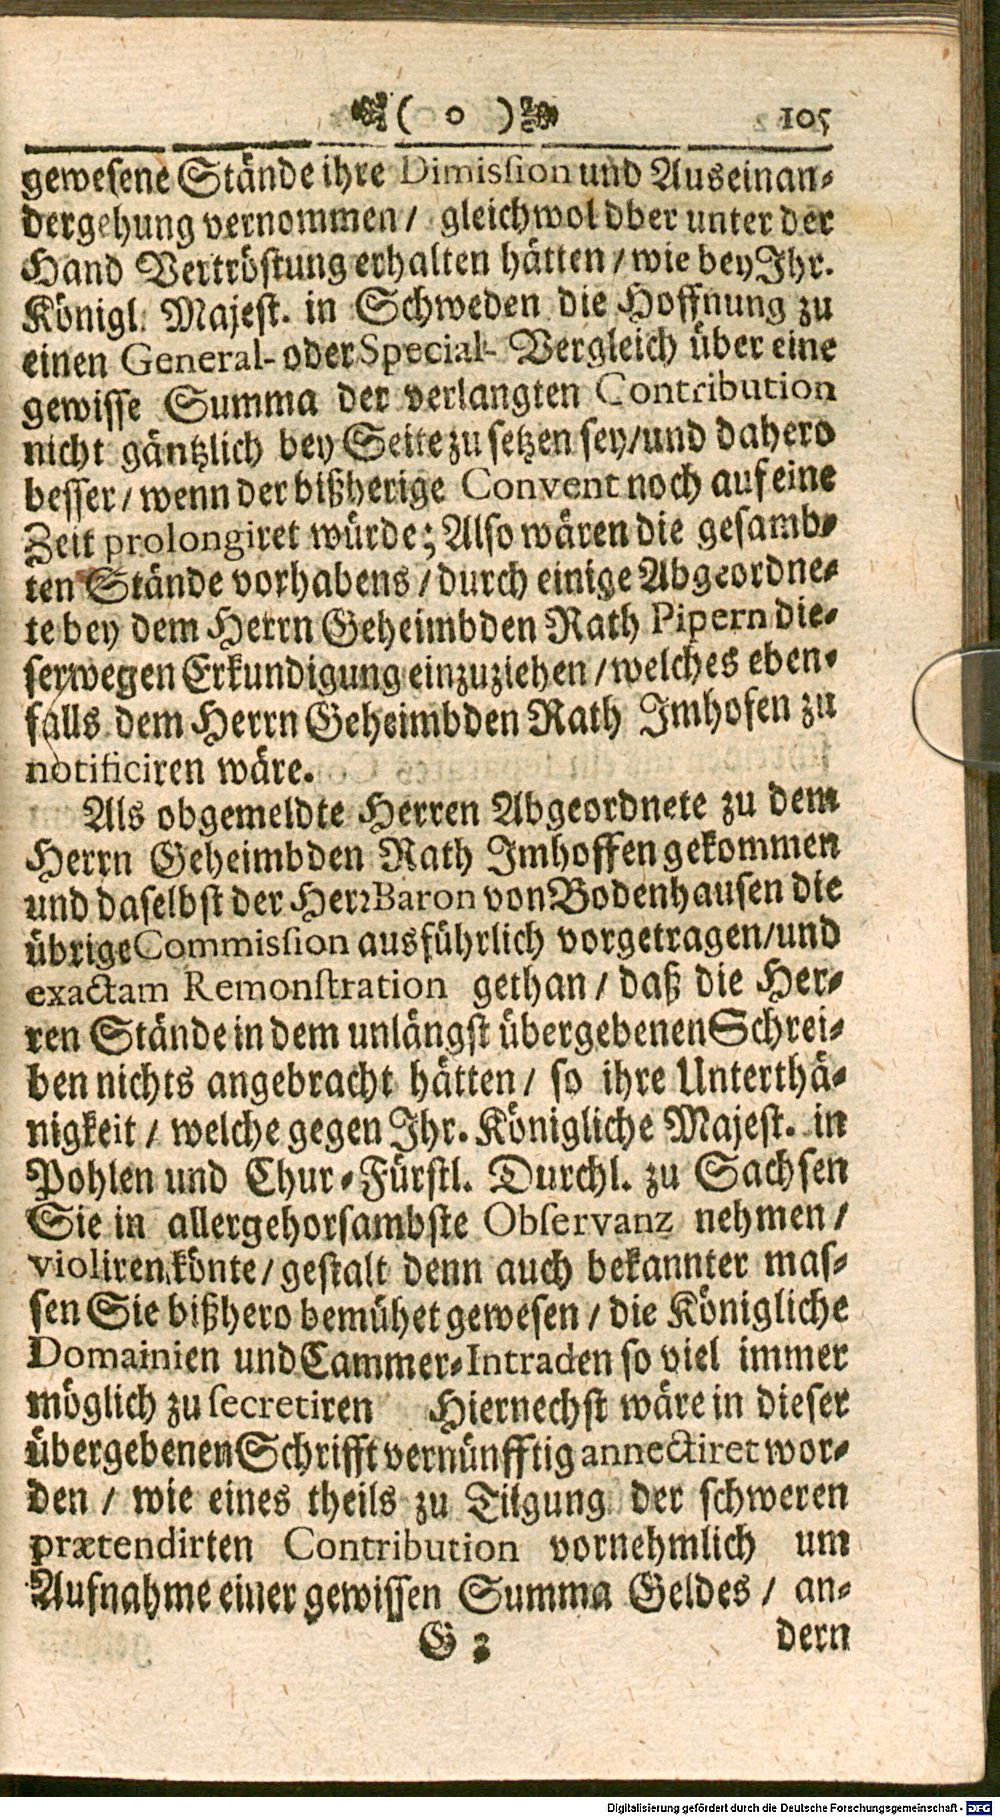 ( o ) 105
gewesene Stände ihre Dimission und Auseinan-
dergehung vernommen / gleichwol dber unter der
Hand Vertröstung erhalten hätten / wie bey Ihr.
Königl. Majest. in Schweden die Hoffnung zu
einen General- oder Special- Vergleich über eine
gewisse Summa der verlangten Contribution
nicht gäntzlich bey Seite zu setzen sey / und dahero
besser / wenn der bißherige Convent noch auf eine
Zeit prolongiret würde; Also wären die gesamb-
ten Stände vorhabens / durch einige Abgeordne-
te bey dem Herrn Geheimbden Rath Pipern die-
serwegen Erkundigung einzuziehen / welches eben-
falls dem Herrn Geheimbden Rath Imhofen zu
notificiren wäre.
Als obgemeldte Herren Abgeordnete zu dem
Herrn Geheimbden Rath Imhoffen gekommen
und daselbst der Herr Baron von Bodenhausen die
übrige Commission ausführlich vorgetragen / und
exactam Remonstration gethan / daß die Her-
ren Stände in dem unlängst übergebenen Schrei-
ben nichts angebracht hätten / so ihre Unterthä-
nigkeit / welche gegen Ihr. Königliche Majest. in
Pohlen und Chur-Fürstl. Durchl. zu Sachsen
Sie in allergehorsambste Observanz nehmen /
violiren könte / gestalt denn auch bekannter mas-
sen Sie bißhero bemühet gewesen / die Königliche
Domainien und Cammer-Intraden so viel immer
möglich zu secretiren Hiernechst wäre in dieser
übergebenen Schrifft vernünfftig annectiret wor-
den / wie eines theils zu Tilgung der schweren
prætendirten Contribution vornehmlich um
Aufnahme einer gewissen Summa Geldes / an-
G 3 dern
Digitalisierung gefördert durch die Deutsche Forschungsgemeinschaft - DFG